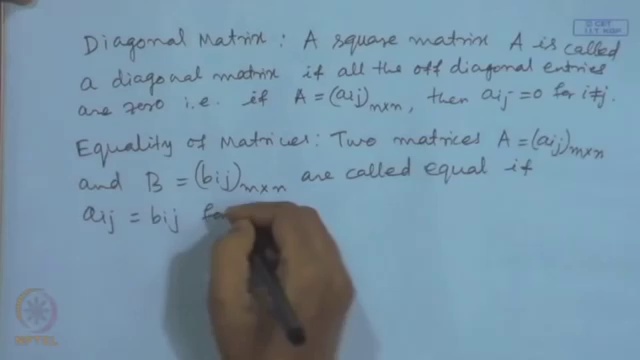 © CET
I.I.T. KGP
Diagonal Matrix : A square matrix A is called
a diagonal matrix if all the off diagonal entries
are zero i.e. if A = (aij)n×n, then aij = 0 for i≠j.
Equality of Matrices: Two matrices A = (aij)m×n
and B = (bij)m×n are called equal if
aij = bij for
NPTEL